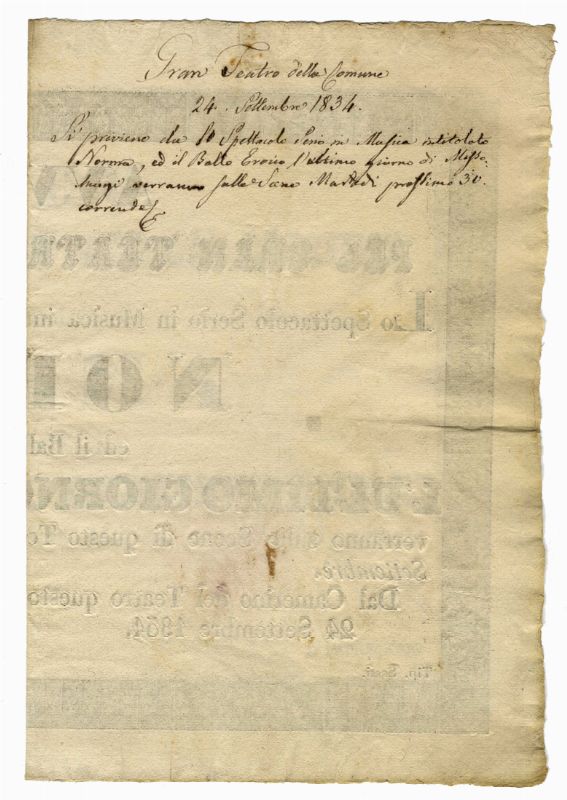 Gran Teatro della Comune
24. Settembre 1834.
Si previene che lo Spettacolo Serio in Musica intitolato
Norma, ed il Ballo Eroico l'ultimo giorno di Misso-
lungi verranno sulle Scene Martedì prossimo 30.
corrente
AV
PEL GRAN TEATR
Lo Spettacolo Serio in Musica int
NOR
ed il Bal
L'ULTIMO GIORNO
verranno sulle Scene di questo Te
Settembre.
Dal Camerino del Teatro questo
24 Settembre 1834.
Tip. Sassi.